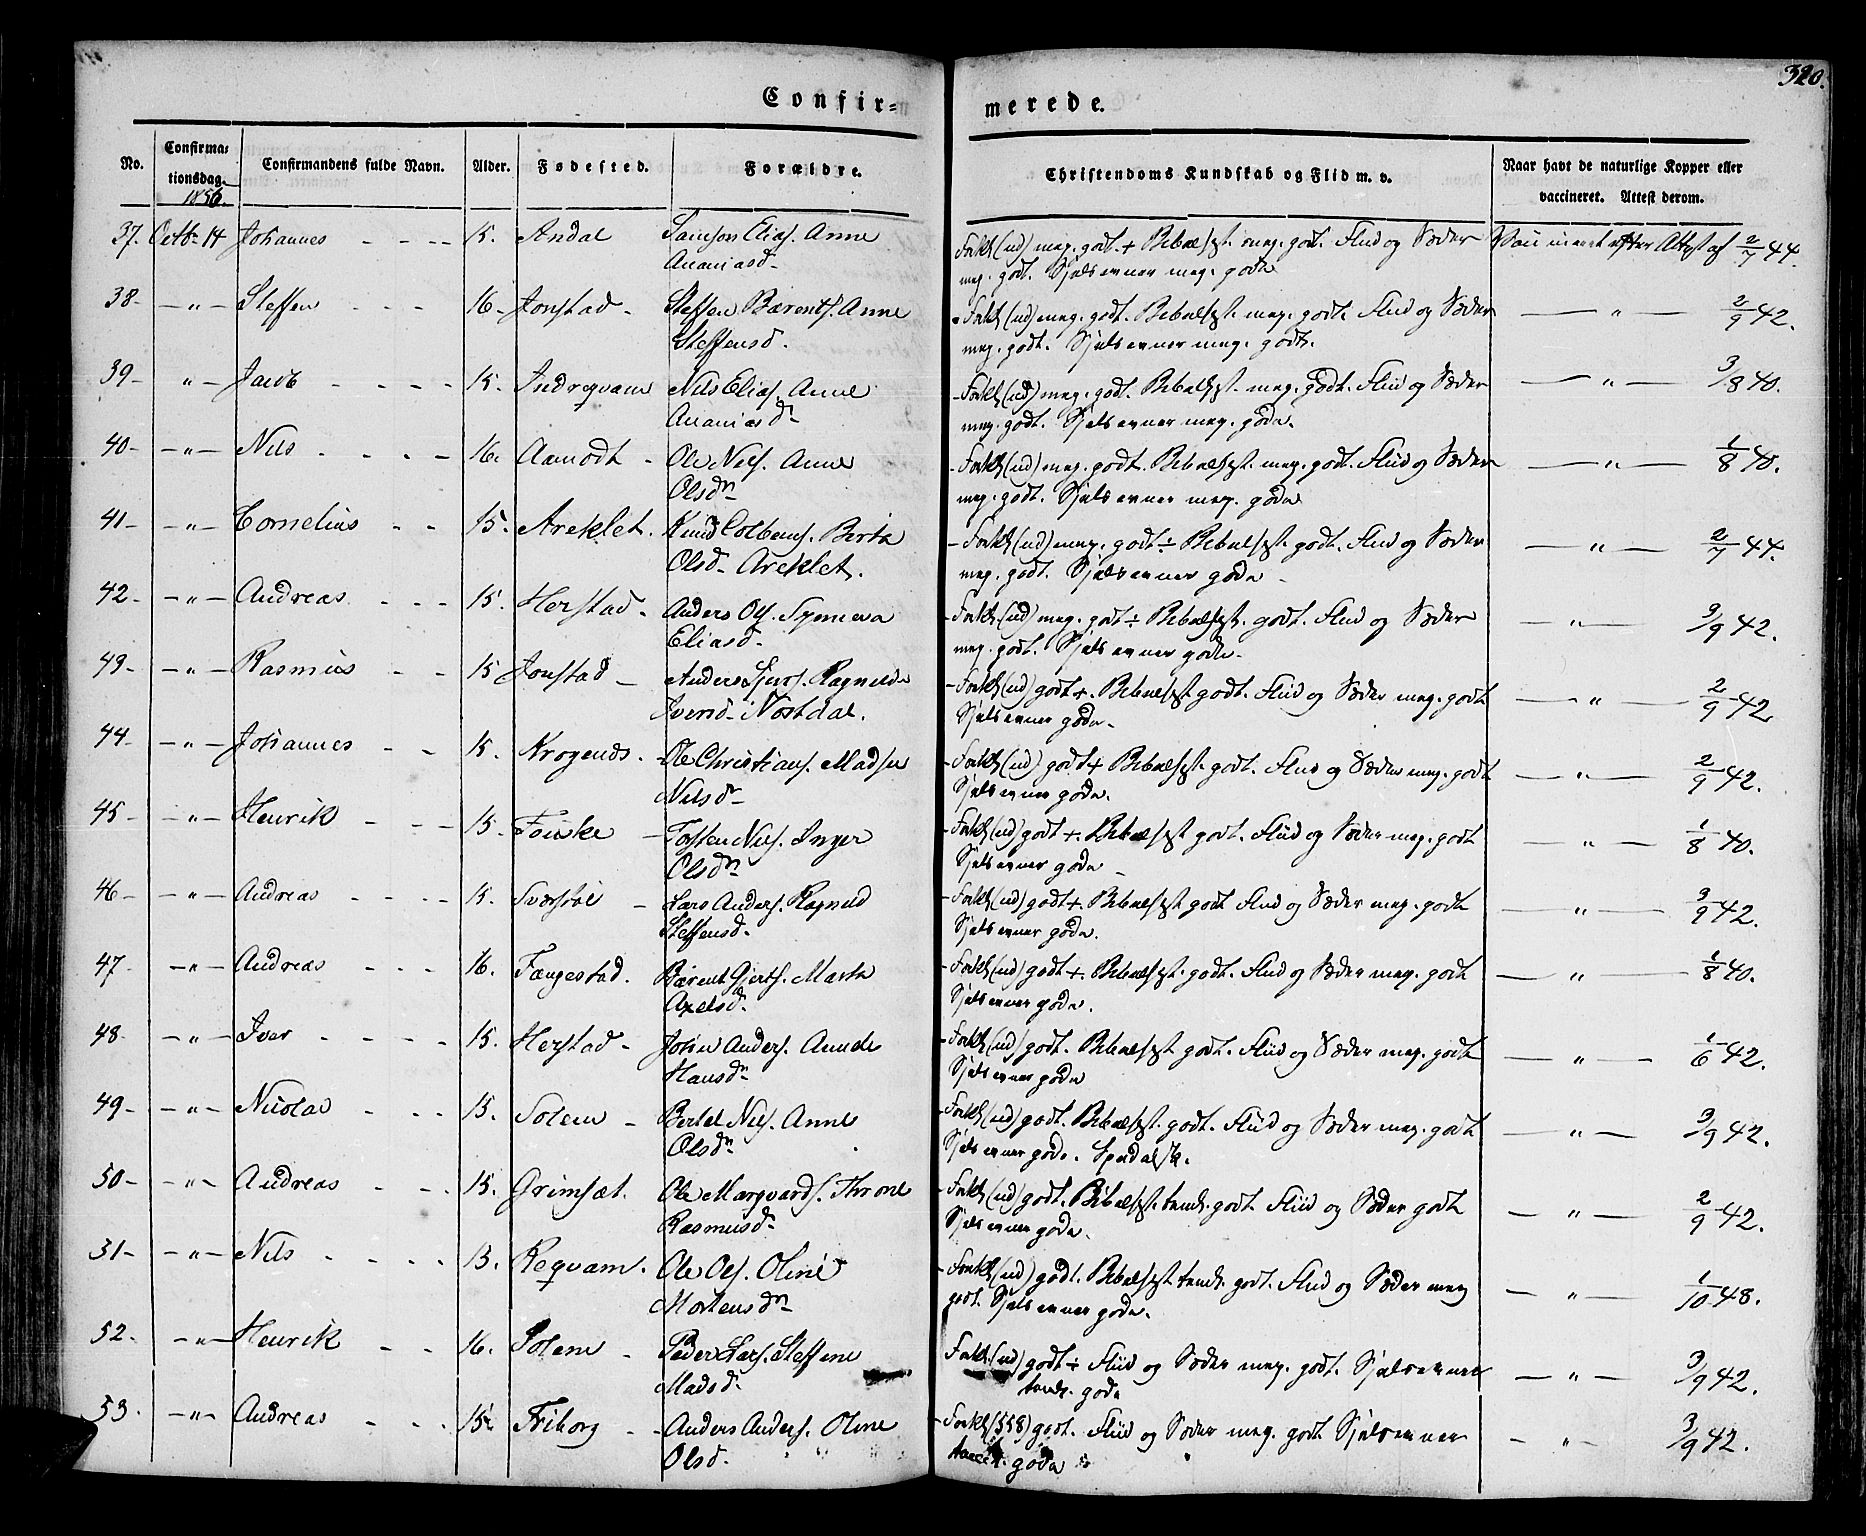 320.
Confir=
merede.
No.
Confirma=
tionsdag.
1856.
Confirmandens fulde Navn.
Alder.
Fødested.
Forældre.
Christendoms Kundskab og Flid m. v.
Naar havt de naturlige Kopper eller
vaccineret. Attest derom.
37. Octb. 14 Johannes - - - - 15. Andal Samson Elias. Anne
Ananiasd.
Forkl (ud) meg. godt + Bibelhist. meg. godt. Flid og Sæder
meg. godt. Sjelsevner meg. gode
Vaccineret efter Attest af 2/7 44.
38 - — „ — Steffen - - - 16 - Jonstad - Steffen Bærents. Anne
Steffensd.
Forkl (ud) meg. godt. Bibelhist. meg. godt. Flid og Sæder
meg. godt. Sjelsevner meg. gode.
— „ — 2/9 42.
39 - „ — Jacob - - - - 15. Indreqvam Nils Elias. Anne
Ananiasd.
- Forkl (ud) meg. godt. Bibelhist. meg. godt. Flid og Sæder
meg. godt. Sjelsevner meg. gode.
— „ — 3/8 40.
40 - — „ — Nils - - - - 16. Aamodt - Ole Nils. Anne
Olsdn
- Forkl (ud) meg. godt. Bibelhist. meg. godt. Flid og Sæder
meg. godt. Sjelsevner meg. gode
— „ — 1/8 40.
41 - — „ — Cornelius - - 15. Areklet. Knud Colbens. Berta
Olsd. Areklet.
- Forkl (ud) meg. godt ÷ Bibelhist. godt. Flid og Sæder
meg. godt. Sjelsevner gode -
— „ — 2/7 44.
42. — „ — Andreas - - - 15. Herstad - Anders Ols. Synneva
Eliasd.
- Forkl. (ud) meg. godt ÷ Bibelhist. godt. Flid og Sæder
meg. godt. Sjelsevner gode -
— „ — 3/9 42.
43 - — „ — Rasmus - - 15 Jonstad - Anders Ragnilda
Iversd. Nostdal.
- Forkl (ud) godt +. Bibelhist godt. Flid og Sæder meg. godt
Sjelsevner gode -
— „ — 2/9 42
44 - — „ — Johannes - - 15. Krogenes. - Ole Christians. Madsu
Nilsd -
- Forkl (ud) godt + Bibelhist. godt. Flid og Sæder meg. godt
Sjelsevner gode.
— „ — 2/9 42.
45 - — „ — Henrik - - - 15. Foiske - Torsten Nils. Inger
Olsdn
- Forkl (ud) godt + Bibelhist godt. Flid og Sæder meg. godt
Sjelsevner gode -
— „ — 1/8 40.
46 - — „ — Andreas - - - - 15. - Lars Anders. Ragnild
Steffensd.
- Forkl (ud) godt +. Bibelhist godt Flid og Sæder meg. godt
Sjelsevner gode.
— „ — 3/9 42.
47 - — „ — Andreas - - - 16. Fængestad. Bærent Gjerts. Marta
Axelsd.
- Forkl (ud) godt +. Bibelhist. godt. Flid og Sæder meg. godt
Sjelsevner gode.
— „ — 1/8 40.
48 - — „ — Iver - - - - 15. Herstad - John Anders. Aunde
Hansdn
- Forkl (ud) godt. Bibelhist godt. Flid og Sæder meg. godt
Sjelsevner gode
— „ — 1/6 42.
49 - — „ — Nicolai - - - 15. Solem - Bertel Nils. Anne
Olsdn
- Forkl (ud) godt. Bibelhist. godt. Flid og Sæder meg. godt
Sjelsevner gode. Spedalsk.
— „ — 3/9 42.
50 - — „ — Andreas - - - 15. Grimsæt. Ole Marqvards. Throne
Rasmusd.
- Forkl (ud) godt. Bibelhist. temk. godt. Flid og Sæder godt
Sjelsevner gode.
— „ — 2/9 42.
51 - — „ — Nils - - - - 15. Reqvam. Ole Ols. Oline
Mortensdn
- Forkl (ud) godt. Bibelhist temk. godt. Flid og Sæder meg
godt. Sjelsevner gode.
— „ — 1/10 48.
52. — „ — Henrik - - 16. Solem - Peder Lars. Steffine
Madsd.
Forkl. (ud) godt ÷ Flid og Sæder meg. godt. Sjelsevner
temk. gode
— „ — 3/9 42.
53. — „ — Andreas - - - 15. Friborg - Anders Anders. Oline
Olsd.
- Forkl (558) godt. Flid og Sæder meg. godt Sjelsevner
gode
— „ — 3/9 42.